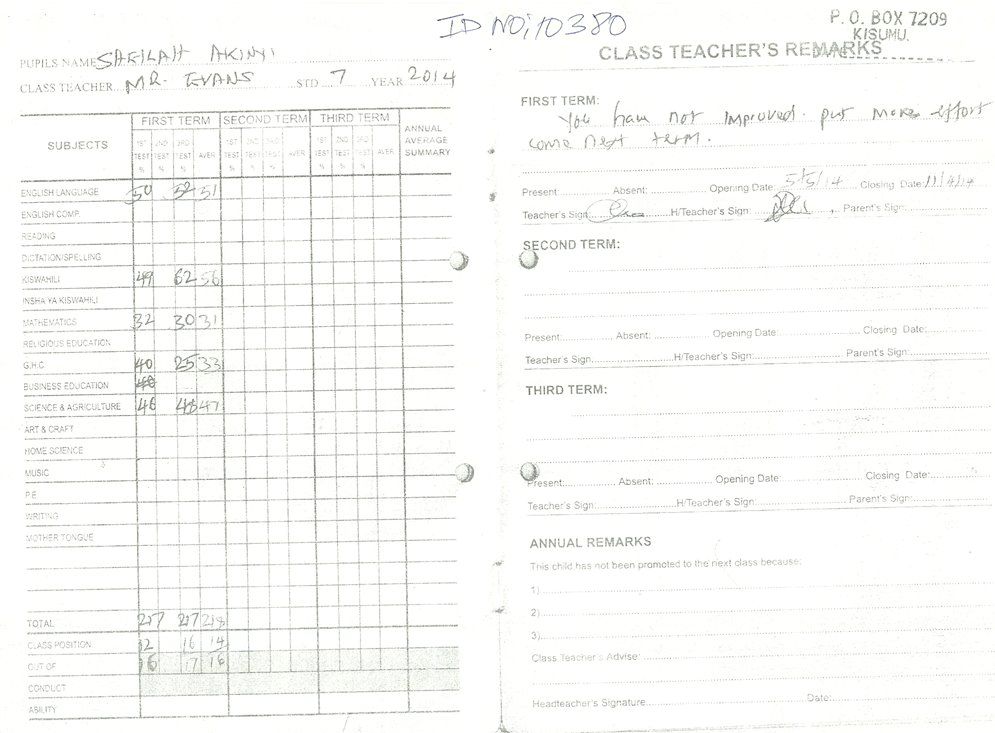 ID NO: 10380
PUPILS NAME SHEILAH AKINYI
CLASS TEACHER MR. EVANS STD 7 YEAR 2014
SUBJECTS FIRST TERM SECOND TERM THIRD TERM ANNUAL AVERAGE SUMMARY
1ST TEST % 2ND TEST % 3RD TEST % AVER 1ST TEST % 2ND TEST % 3RD TEST % AVER 1ST TEST % 2ND TEST % 3RD TEST % AVER
ENGLISH LANGUAGE 50 52 51
ENGLISH COMP.
READING
DICTATION/SPELLING
KISWAHILI 49 62 56
INSHA YA KISWAHILI
MATHEMATICS 32 30 31
RELIGIOUS EDUCATION
G.H.C 40 25 33
BUSINESS EDUCATION
SCIENCE & AGRICULTURE 46 48 47
ART & CRAFT
HOME SCIENCE
MUSIC
P.E
WRITING
MOTHER TONGUE
TOTAL 217 217 218
CLASS POSITION 12 16 14
OUT OF 16 17 16
CONDUCT
ABILITY
P. O. BOX 7209
KISUMU.
CLASS TEACHER'S REMARKS
FIRST TERM:
You have not improved. put more effort
come next term.
Present: Absent: Opening Date: 5/5/14 Closing Date: 11/4/14
Teacher's Sign: H/Teacher's Sign: Parent's Sign:
SECOND TERM:
Present: Absent: Opening Date: Closing Date:
Teacher's Sign: H/Teacher's Sign: Parent's Sign:
THIRD TERM:
Present: Absent: Opening Date: Closing Date:
Teacher's Sign: H/Teacher's Sign: Parent's Sign:
ANNUAL REMARKS
This child has not been promoted to the next class because:
1)
2)
3)
Class Teacher's Advise:
Headteacher's Signature Date: